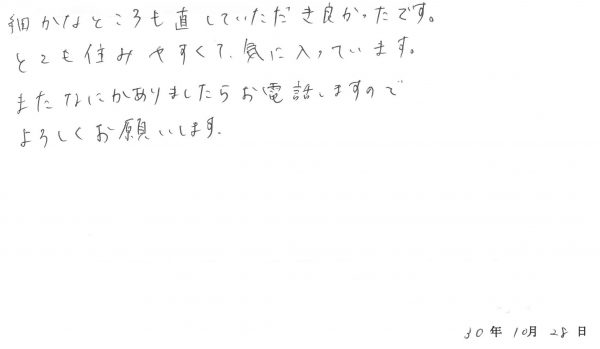 細かなところも直していただき良かったです。
とても住みやすくて、気に入っています。
またなにかありましたらお電話しますので
よろしくお願いします.
30年10月28日